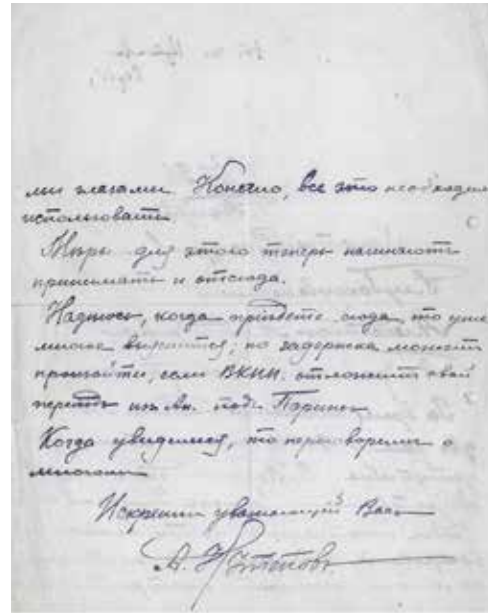 ми глазами. Конечно, все это необходимо
использовать.
Мѣры для этого теперь начинают
принимать и отсюда.
Надѣюсь, когда пріѣдете сюда, то уже
многое выяснится, но задержка может
произойти, если ВКНН. отложит свой
переѣзд из Ан. под Париж
Когда увидимся, то переговорим о
многом
Искренно уважающій Вас
А.